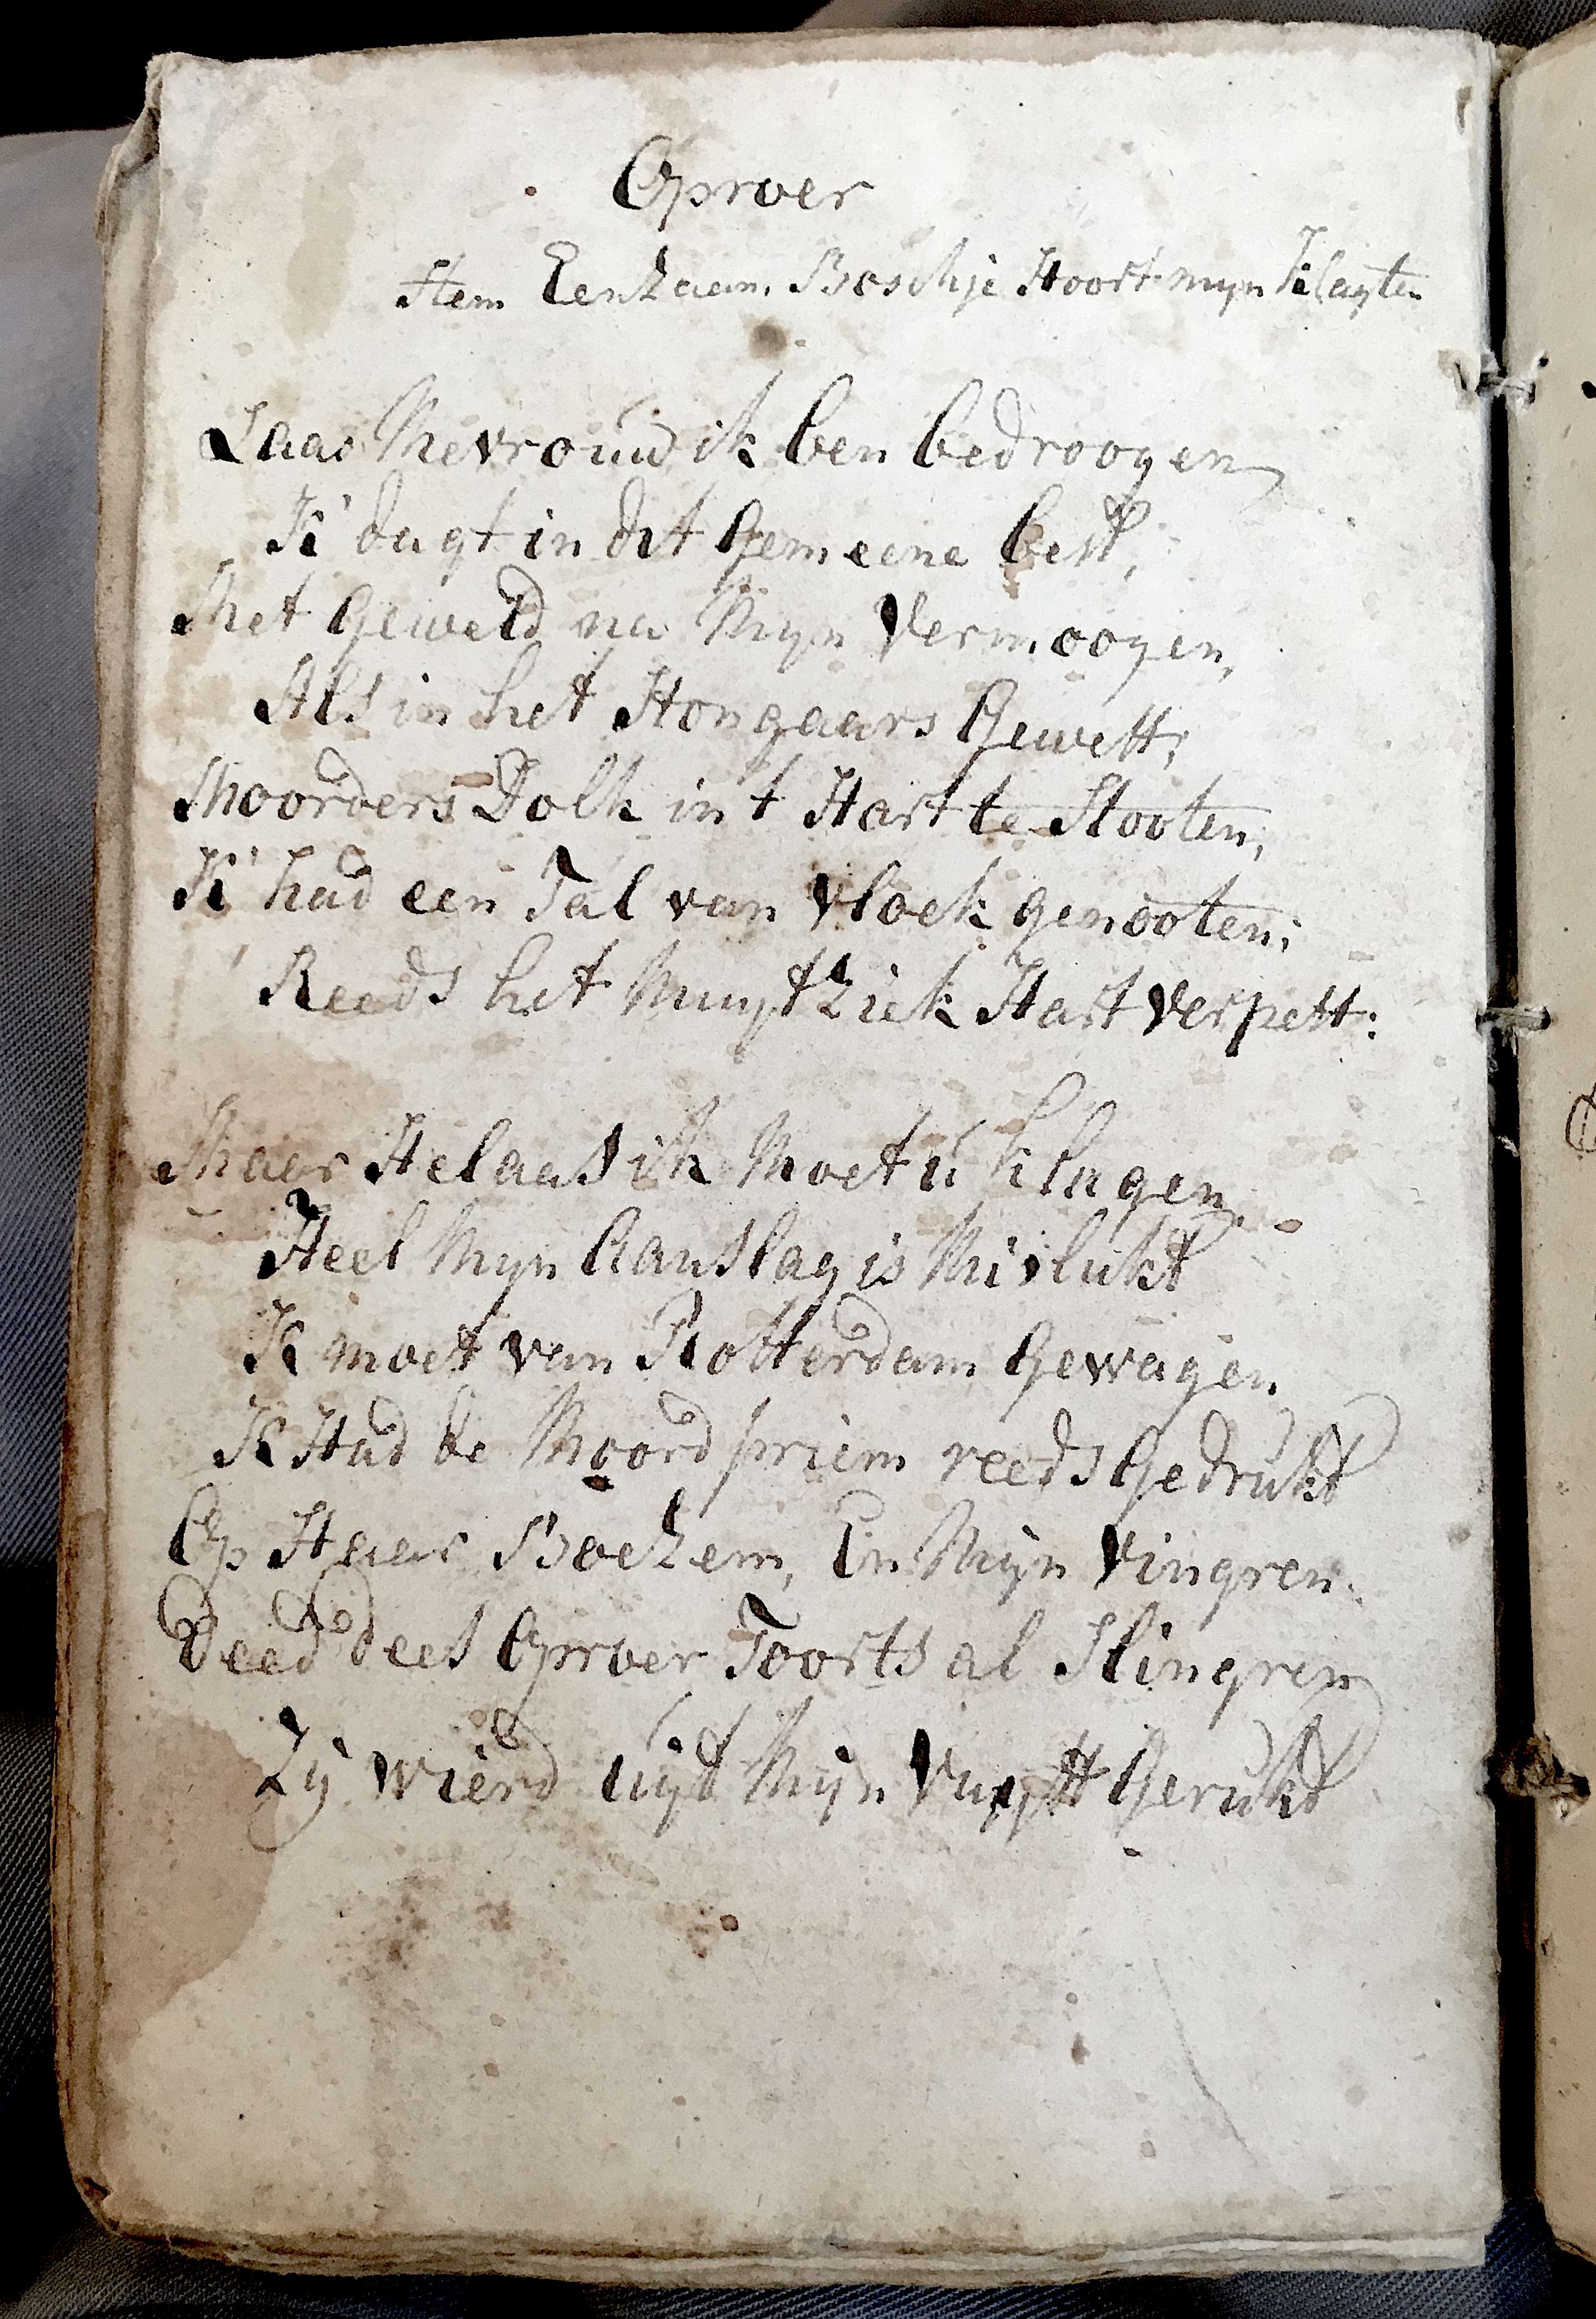 Oproer
Stem Eenzaam Boschje Hoort myn Klagten
Laas Mevrouw ik ben bedroogen
K' dagt in dit Gemeene best,
Met Geweld na Myn Vermoogen,
Als in het Hongaars Gewest;
Moorders Dolk in t Hart te Stooten;
K' had een Tal van vloek genooten;
Reeds het Muyt Ziek Hart verpest:
Maar Helaas ik Moet u klagen
Heel Myn Aanslag is Mislukt
K moet van Rotterdam Gewagen
K Had de Moord priem reeds Gedrukt
Op Haar Boezem, En Myn Vingren
Deed dees Oproer Toorts al Slingren
Zy wierd uyt Myn Vuyst Gerukt